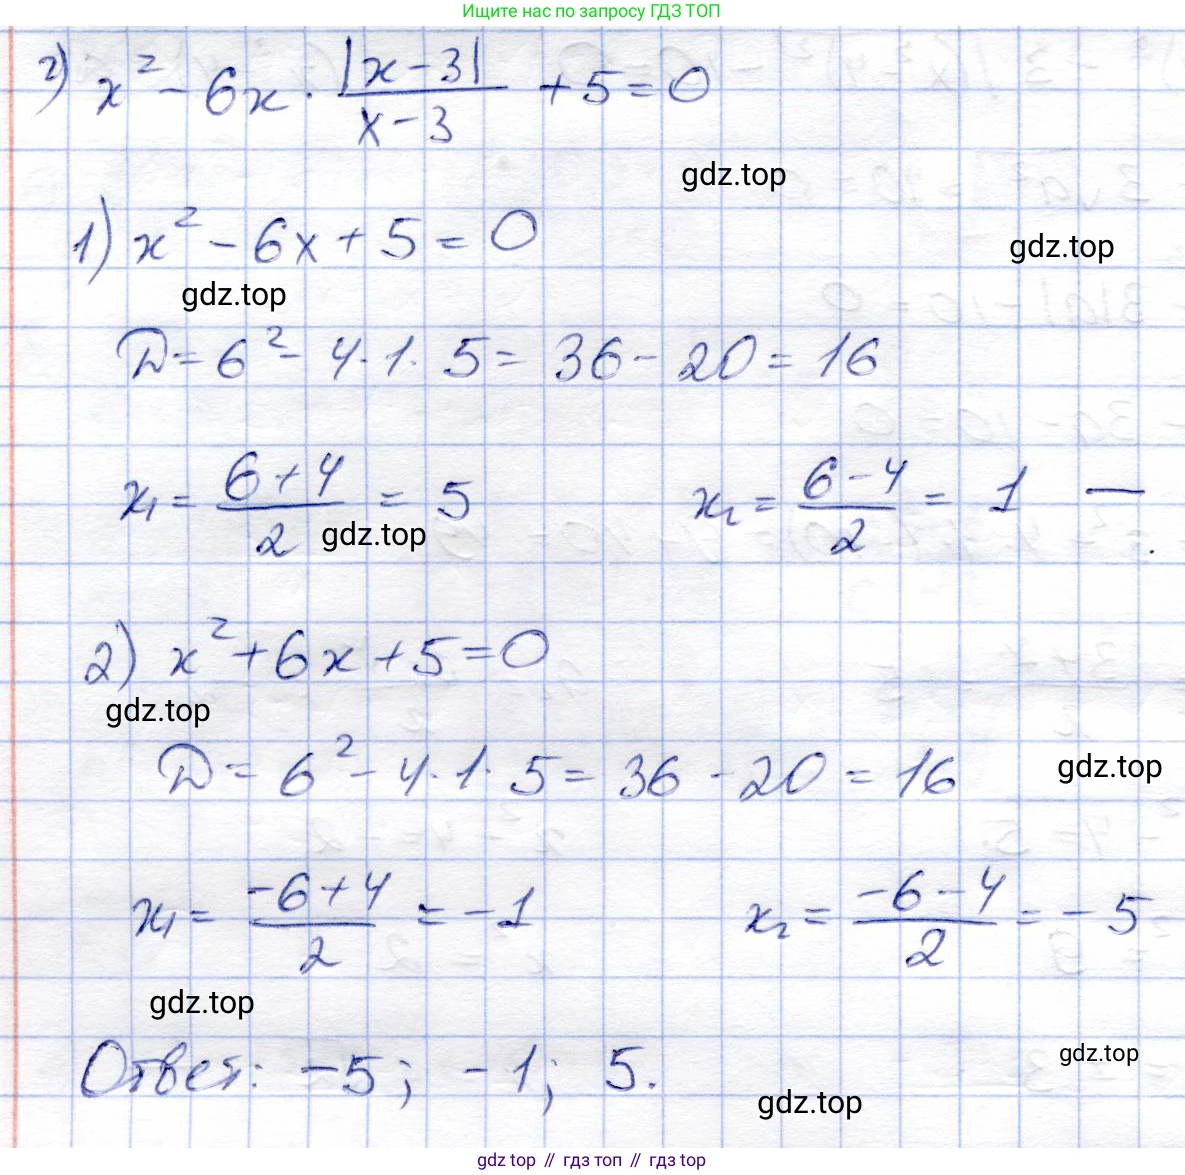 Ищите нас по запросу ГДЗ ТОП
г) x² - 6x · |x-3| / x-3 + 5 = 0
gdz.top
1) x² - 6x + 5 = 0
gdz.top
gdz.top
D = 6² - 4·1·5 = 36 - 20 = 16
x₁ = 6+4 / 2 = 5 x₂ = 6-4 / 2 = 1 —
gdz.top
2) x² + 6x + 5 = 0
gdz.top
D = 6² - 4·1·5 = 36 - 20 = 16
gdz.top
x₁ = -6+4 / 2 = -1 x₂ = -6-4 / 2 = -5
gdz.top
Ответ: -5; -1; 5.
gdz.top
gdz.top
gdz top // гдз топ // гдз top